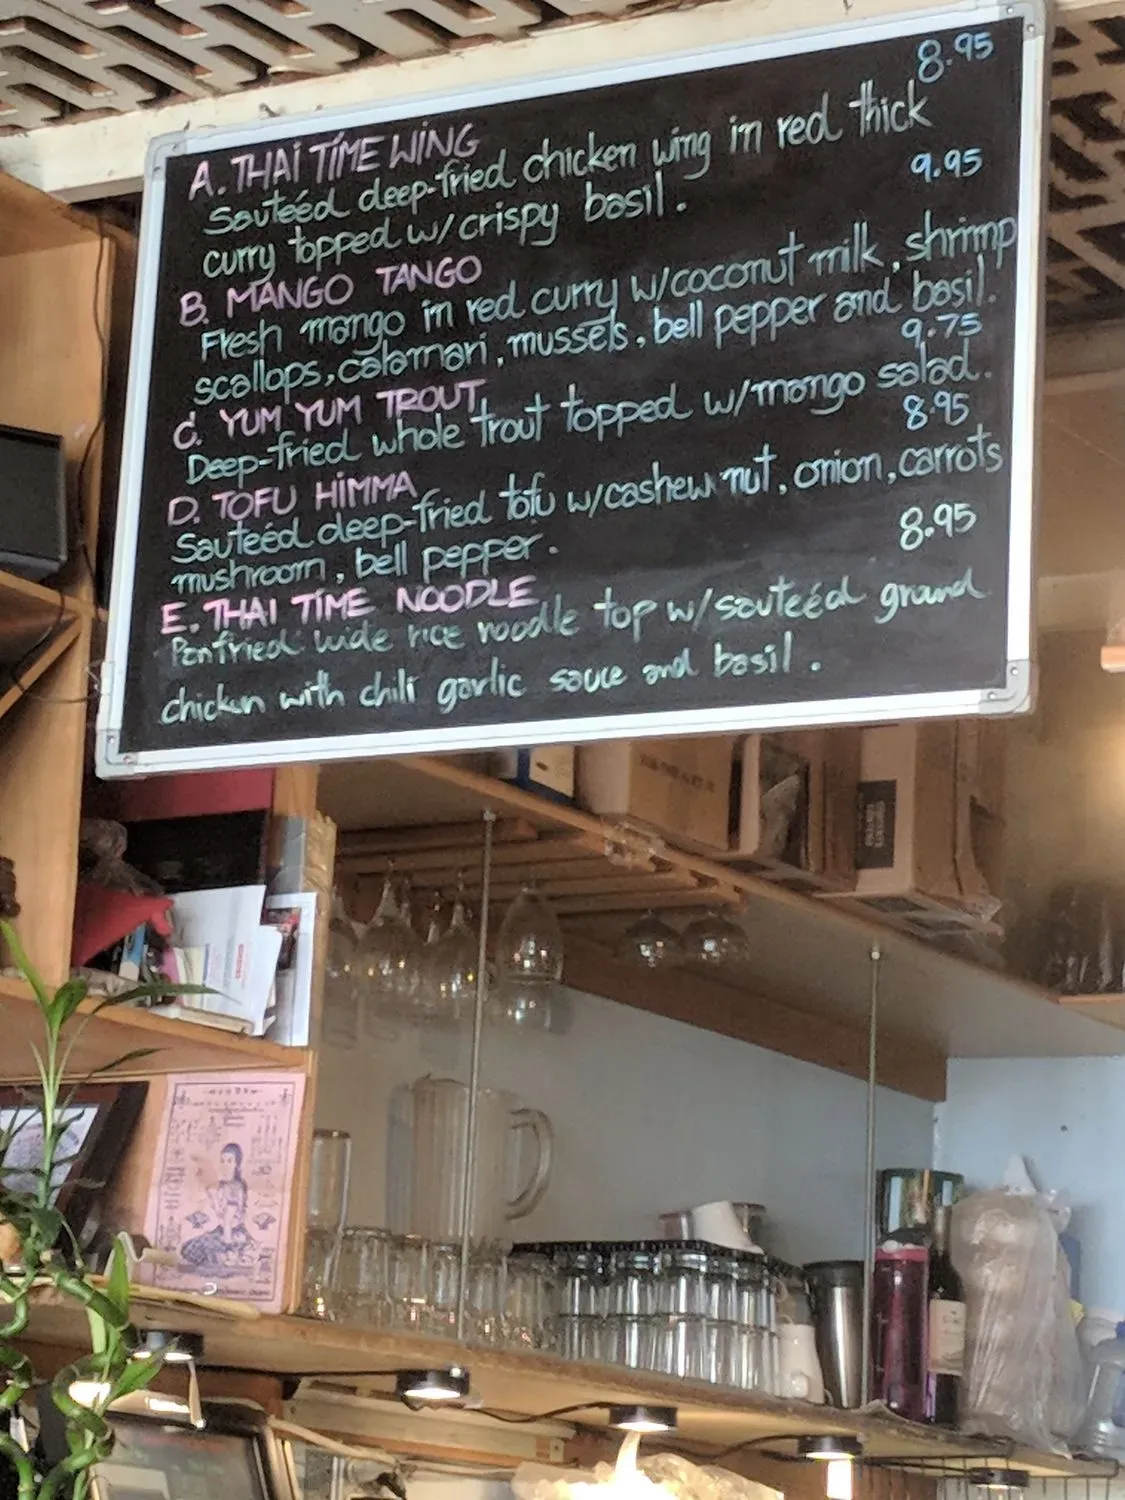 8.95
A. THAI TIME WING
Sauteéd deep-fried chicken wing in red thick
curry topped w/crispy basil.
9.95
B. MANGO TANGO
Fresh mango in red curry w/coconut milk, shrimp
scallops, calamari, mussels, bell pepper and basil.
9.75
C. YUM YUM TROUT
Deep-fried whole trout topped w/mango salad.
8.95
D. TOFU HIMMA
Sauteéd deep-fried tofu w/cashew nut, onion, carrots
mushroom, bell pepper.
8.95
E. THAI TIME NOODLE
Panfried wide rice noodle top w/sauteéd ground
chicken with chili garlic sauce and basil.